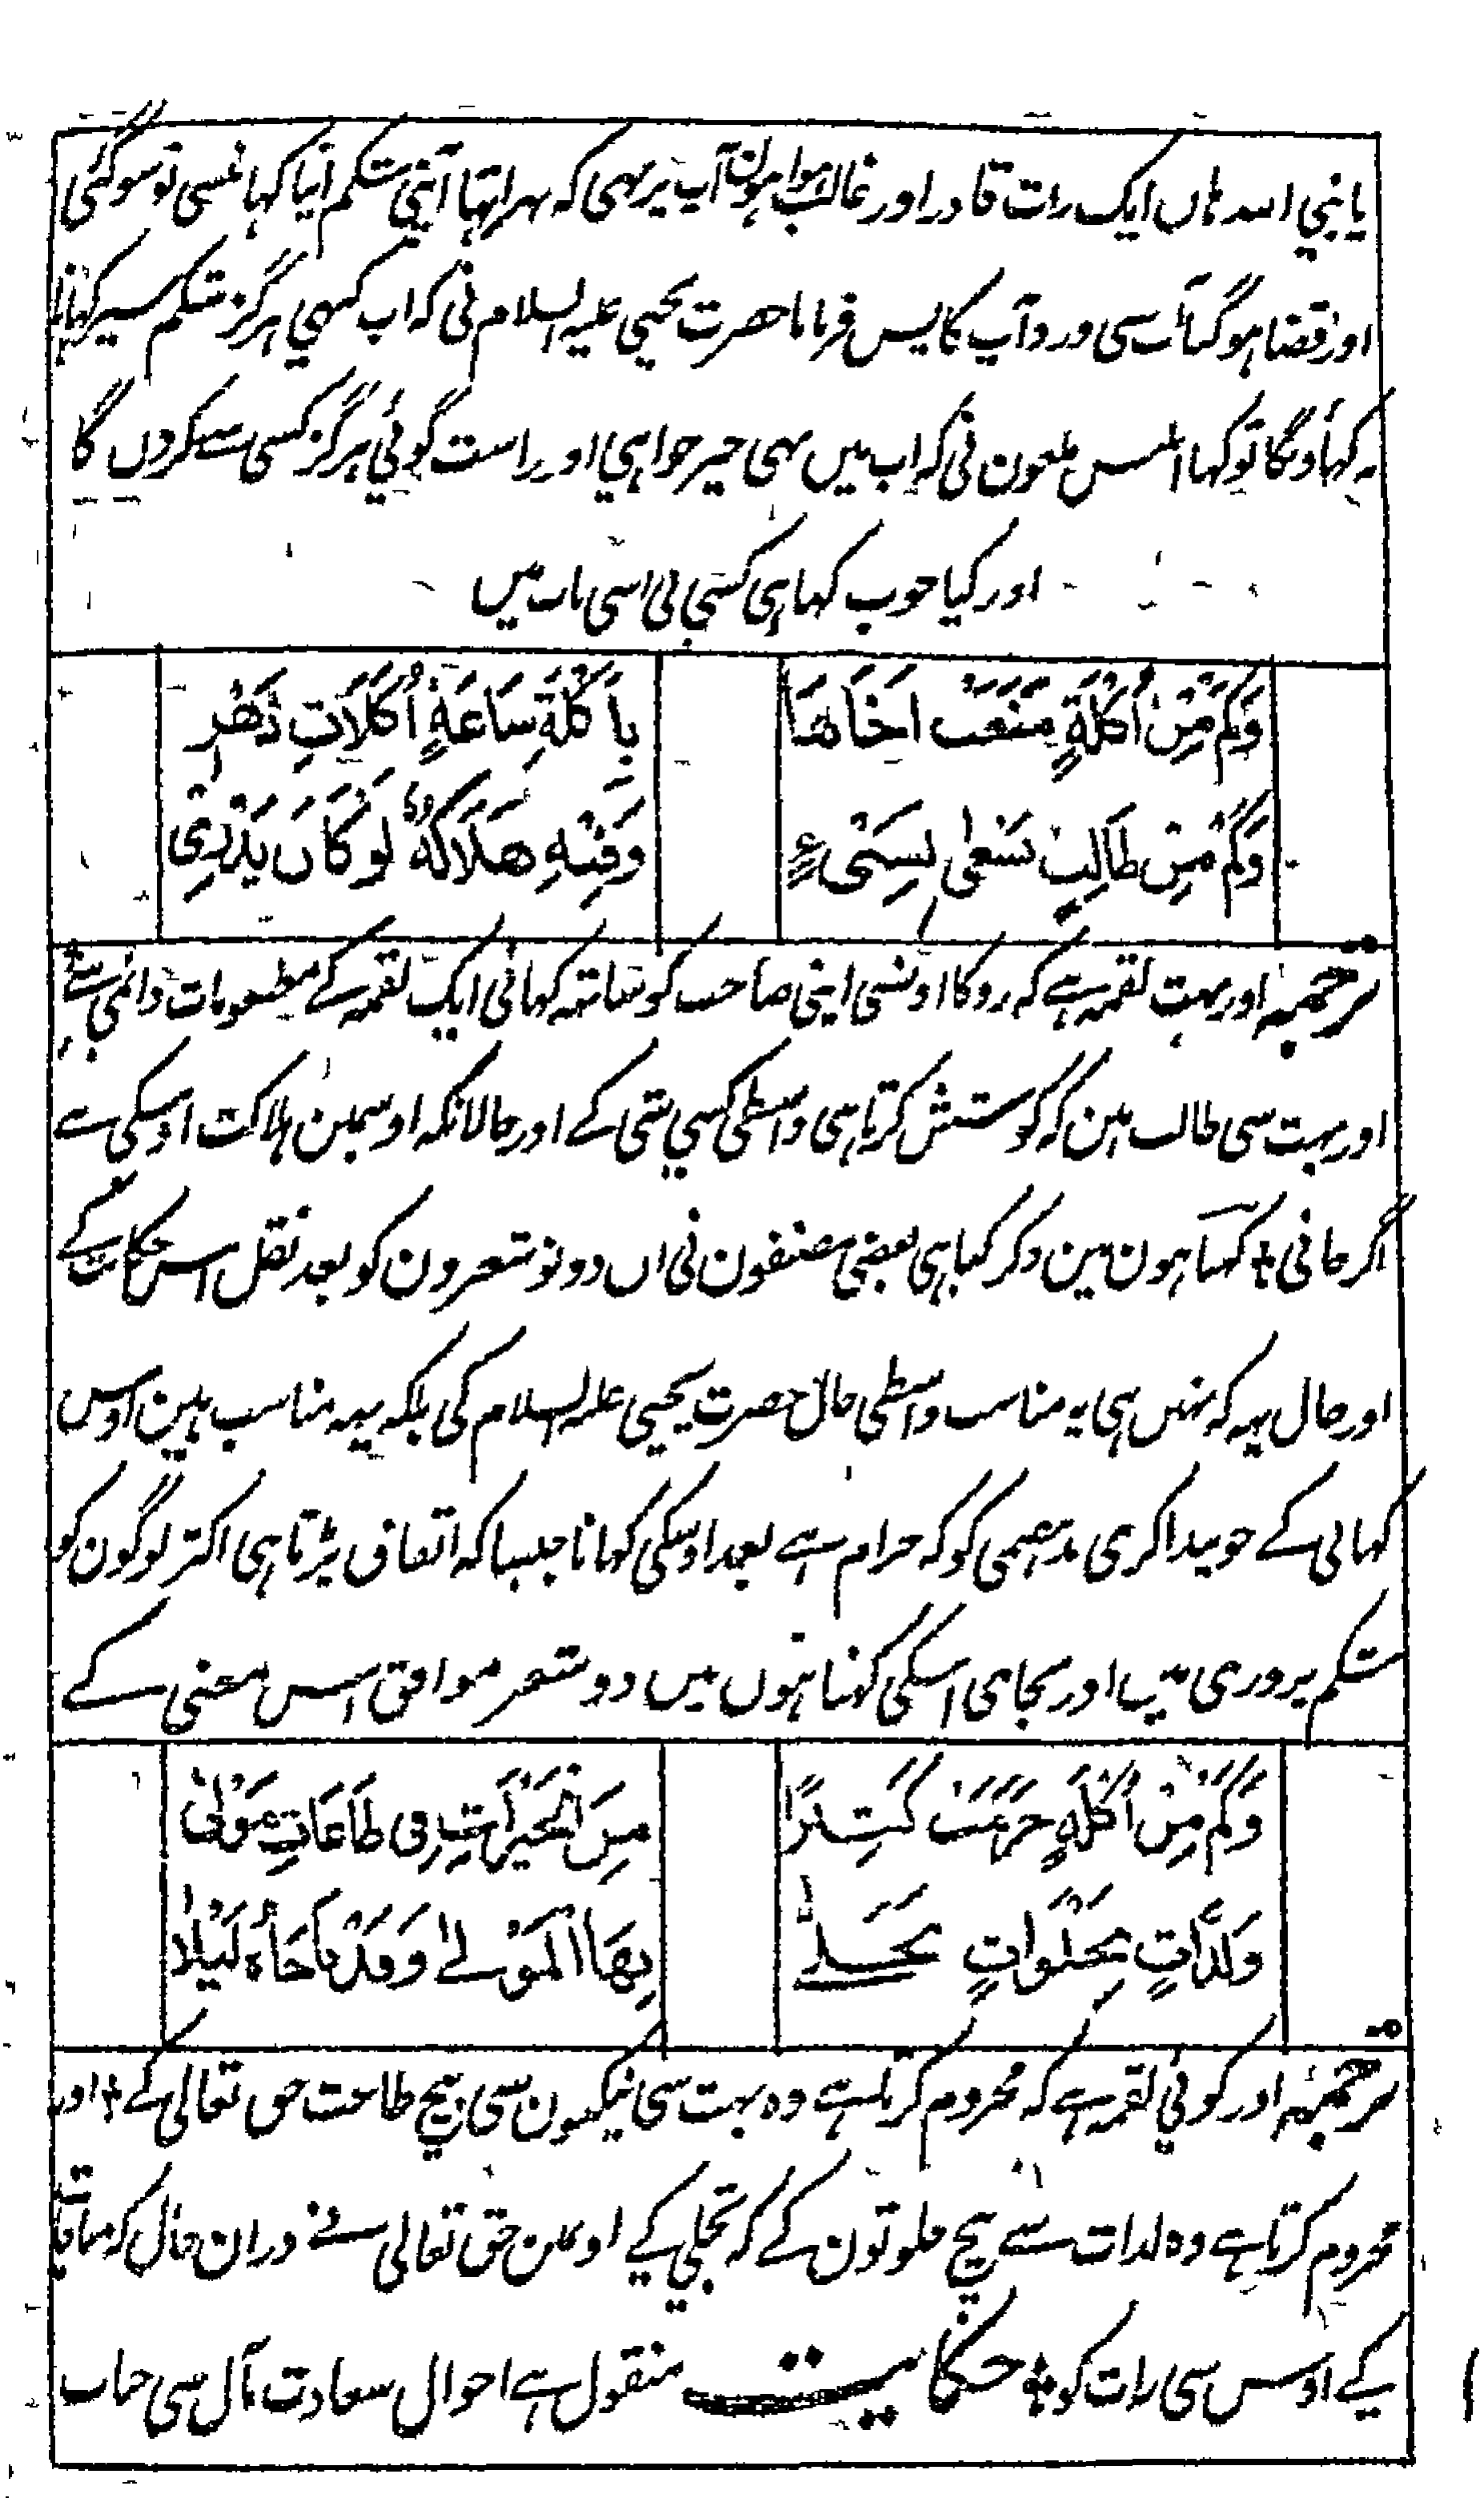 یا نبی اسد ہاں ایک رات قادر اور غالب ہوا ہون آپ پر بہی کہ بہرا تہا آپنی شکم اپنا کہا غسی تو سو گئی
اور قضا ہو گیا آسی ورد آپ کا پس فرمایا حضرت یحیی علیہ السلام نی کہ اب کبهی ہرگز شکم سیر کہانا
نہ کہاؤنگا تو کہا ابلیس ملعون نی کہ اب میں بہی خیر خواہی اور راست گوئی ہرگز کسی سی نکروں گا
اور کیا خوب کہا ہی کسی نی اسی باب میں
وَكَمْ مِنْ اُكْلَةٍ مَنَعَتْ اَخَاهَا
بِاَكْلَةِ سَاعَةٍ اُكَلَاتِ دَهْرٍ
وَكَمْ مِنْ طَالِبٍ يَسْعٰى بِشَىْءٍ
وَفِيْهِ هَلَاكُهُ لَوْ كَانَ يَدْرِىْ
ترجمہ اور بہت لقمہ ہے کہ روکا اونسی اپنی صاحب کو ساتہ کہانی ایک لقمہ کے مطعومات دائمی سے
اور بہت سی طالب ہین کہ کوشش کرتا ہی واسطی کسی شی کے اور حالانکہ اوسمین ہلاکت اوسکی ہے
اگر جانی + کہتا ہون مین ذکر کیا ہی بعضی مصنفون نی ان دونو شعرون کو بعد نقل اس حکایت کے
اور حال یہہ کہ نہیں ہی یہ مناسب واسطی حال حضرت یحیی علیہ السلام کی بلکہ یہہ مناسب ہین اوس
کہانی کے جو پیدا کری بدہضمی کو کہ حرام ہے بعد اوسکی کہانا جیسا کہ اتفاق پڑتا ہی اکثر لوگون کو
شکم پروری میں اور بجای اسکی کہتا ہوں میں دو شعر موافق اس معنی کے
وَكَمْ مِنْ اُكْلَةٍ حَرَمَتْ كَثِيْرًا
مِنَ الْخَيْرَاتِ فِى طَاعَاتِ مَوْلٰى
وَلَذَّاتٍ بِخَلْوَاتٍ تَجَلّٰى
بِهَا الْمَوْلٰے وَقَدْ نَاجَاهُ لَيْلًا
ترجمہ اور کوئی لقمہ ہے کہ محروم کرتا ہے وہ بہت سی نیکیون سی بیچ طاعت حق تعالی کے + اور
محروم کرتا ہے وہ لذات سے بیچ خلوتون کے کہ تجلی کے اونمین حق تعالی نے دران حال کہ مناجات
کے اوس سی رات کو + حکایت منقول ہے احوال سعادت مآل سی جناب